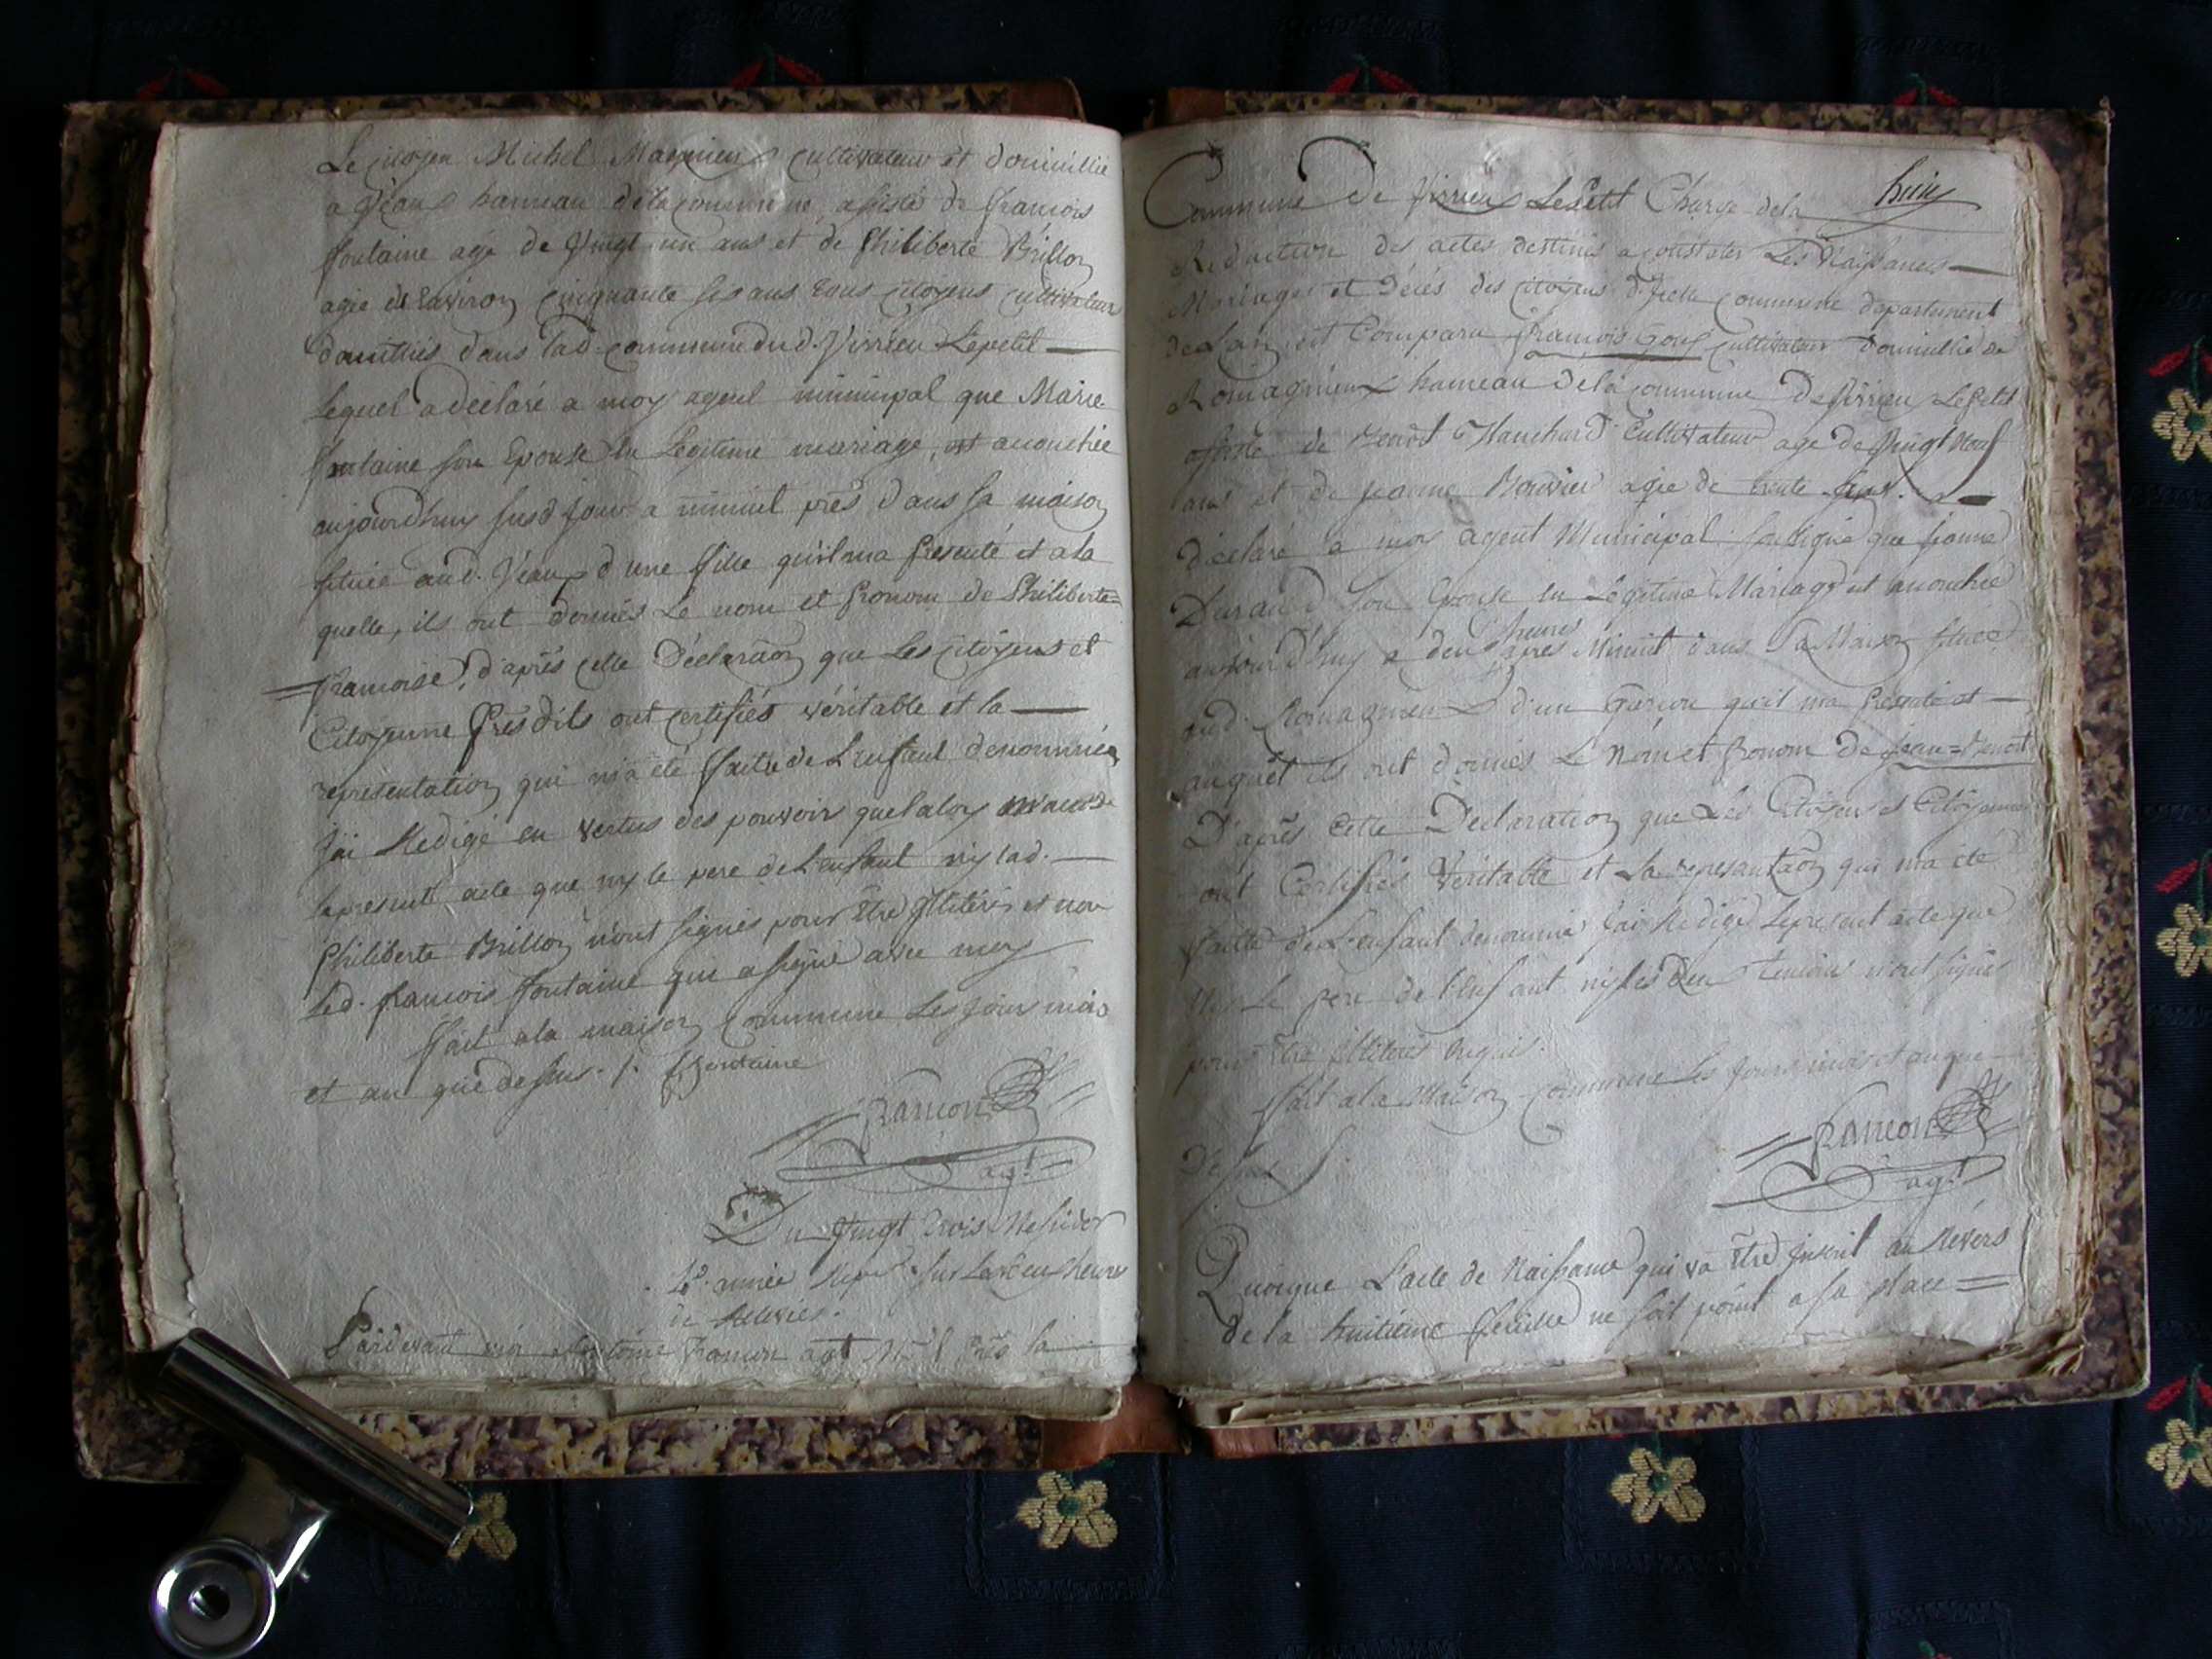 Le citoyen Michel Magnieux cultivateur et domicillié
a hameau de la commune, assisté de francois
fontaine agé de Vingt un ans et de Philiberte Brillon
agée d'Environ cinquante six ans tous citoyens cultivateurs
dans lad. commune dud. Virrieu Lepetit
Lequel a déclaré a moy agent municipal que Marie
fontaine son Epouse en Legitime mariage, est accouchée
aujourdhuy susd jour a minuit près dans sa maison
située aud. d'une fille qu'il ma presenté et a la
quelle, ils ont donnés Le nom et Pronom de Philiberte=
=francoise, d'après cette Déclaraõn que Les citoyens et
Citoyenne présdits ont certifiés véritable et la
représentation qui m'a été faitte de L'enfant denommée
J'ai Redigé en vertus des pouvoirs
le present acte que ny le pere de L'enfant ny lad.
Philiberte Brillon n'ont signés pour être Illiterés et non
Led. francois fontaine qui a signé avec moy
fait a la maison commune Les jour mois
et an que dessus ./. f fontaine
francon
agt
Du Vingt trois Messidor
4e. année Repu. sur heures
de
Pardevant moi Antoine francon agt Mal près la
huit
Commune De Virrieu LePetit Chargé de la
Redaction des actes destinés a constater Les Naissances
Mariages et Décés des citoyens d'Icelle commune departement
de Lain, est Comparu francois Goux cultivateur Domicillié de
Romagnieux hameau de la commune De Virrieu LePetit
assisté de Benoit Blanchard Cultivateur agé de Vingt Neuf
ans et de jeanne Bouvier agée de trente a
Déclaré a moy agent Municipal soussigné que jeanne
Durand son Epouse en Légitime Mariage est accouchée
aujourd'huy a deux heures apres Minuit dans Sa Maison située
aud. Romagnieux d'un Garçon qu'il ma Présenté et
auquel ils ont donnés Le Nom et Pronom de jean=Benoit
D'après Cette Déclaration que Les Citoyens et Citoyenne
ont Certifiés Véritable et La representaõn qui ma été
faitte de L'enfant denommé J'ai Redigé Le present acte que
Ny Le pere de l'Enfant ny les deux temoins n'ont signés
pour être Illiterés Requis.
fait a la Maison commune Les jours mois et an que
Dessus
francon
agt
Quoique L'acte de Naissance qui va être Inscrit au Révers
de la huitième feuille ne soit point a sa place